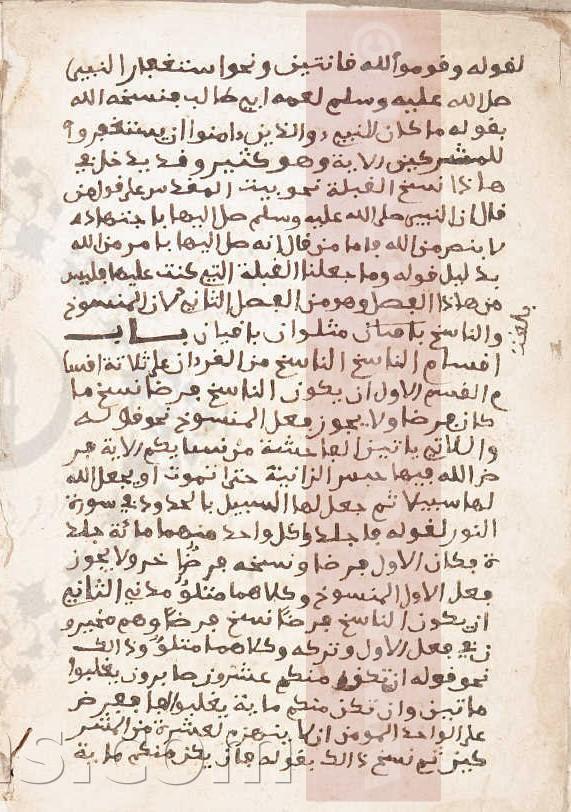 لقوله وقوموا لله قانتين ونحو استغفار النبي
صلى الله عليه وسلم لعمه ابي طالب فنسخه الله
بقوله ما كان للنبي والذين ءامنوا ان يستغفروا
للمشركين الاية وهو كثير وقد يدخل في
هاذا نسخ القبلة نحو بيت المقدس على قول من
قال ان النبي صلى الله عليه وسلم صلى اليها باجتهاده
لا بنص من الله واما من قال انه صلى اليها بامر من الله
بدليل قوله وما جعلنا القبلة التي كنت عليها فليس
من هاذا الفصل وهو من الفصل الثاني لان المنسوخ
والناسخ باقيان متلوان باقيان باب
اقسام الناسخ الناسخ من القرءان على ثلاثة اقسا
م القسم الاول ان يكون الناسخ فرضا نسخ ما
كان فرضا ولا يجوز فعل المنسوخ نحو قوله
واللاتي ياتين الفاحشة من نسايكم الاية فر
ض الله فيها حبس الزانية حتى تموت او يجعل الله
لها سبيلا ثم جعل لها السبيل بالحدود في سورة
النور لقوله فاجلدوا كل واحد منهما مائة جلد
ة فكان الاول فرضا ونسخه فرضا ءاخر ولا يجوز
فعل الاول المنسوخ وكلاهما متلو مدني الثاني
ان يكون الناسخ فرضا نسخ فرضا وهم مخيرو
ن في فعل الاول وتركه وكلاهما متلو وذالك
نحو قوله ان يكن منكم عشرون صابرون يغلبوا
مائتين وان تكن منكم ماية يغلبوا الفا ففرض
على الواحد المومن ان لا ينهزم لعشرة من المشر
كين ثم نسخ ذالك بقوله فان يكن منكم ماية